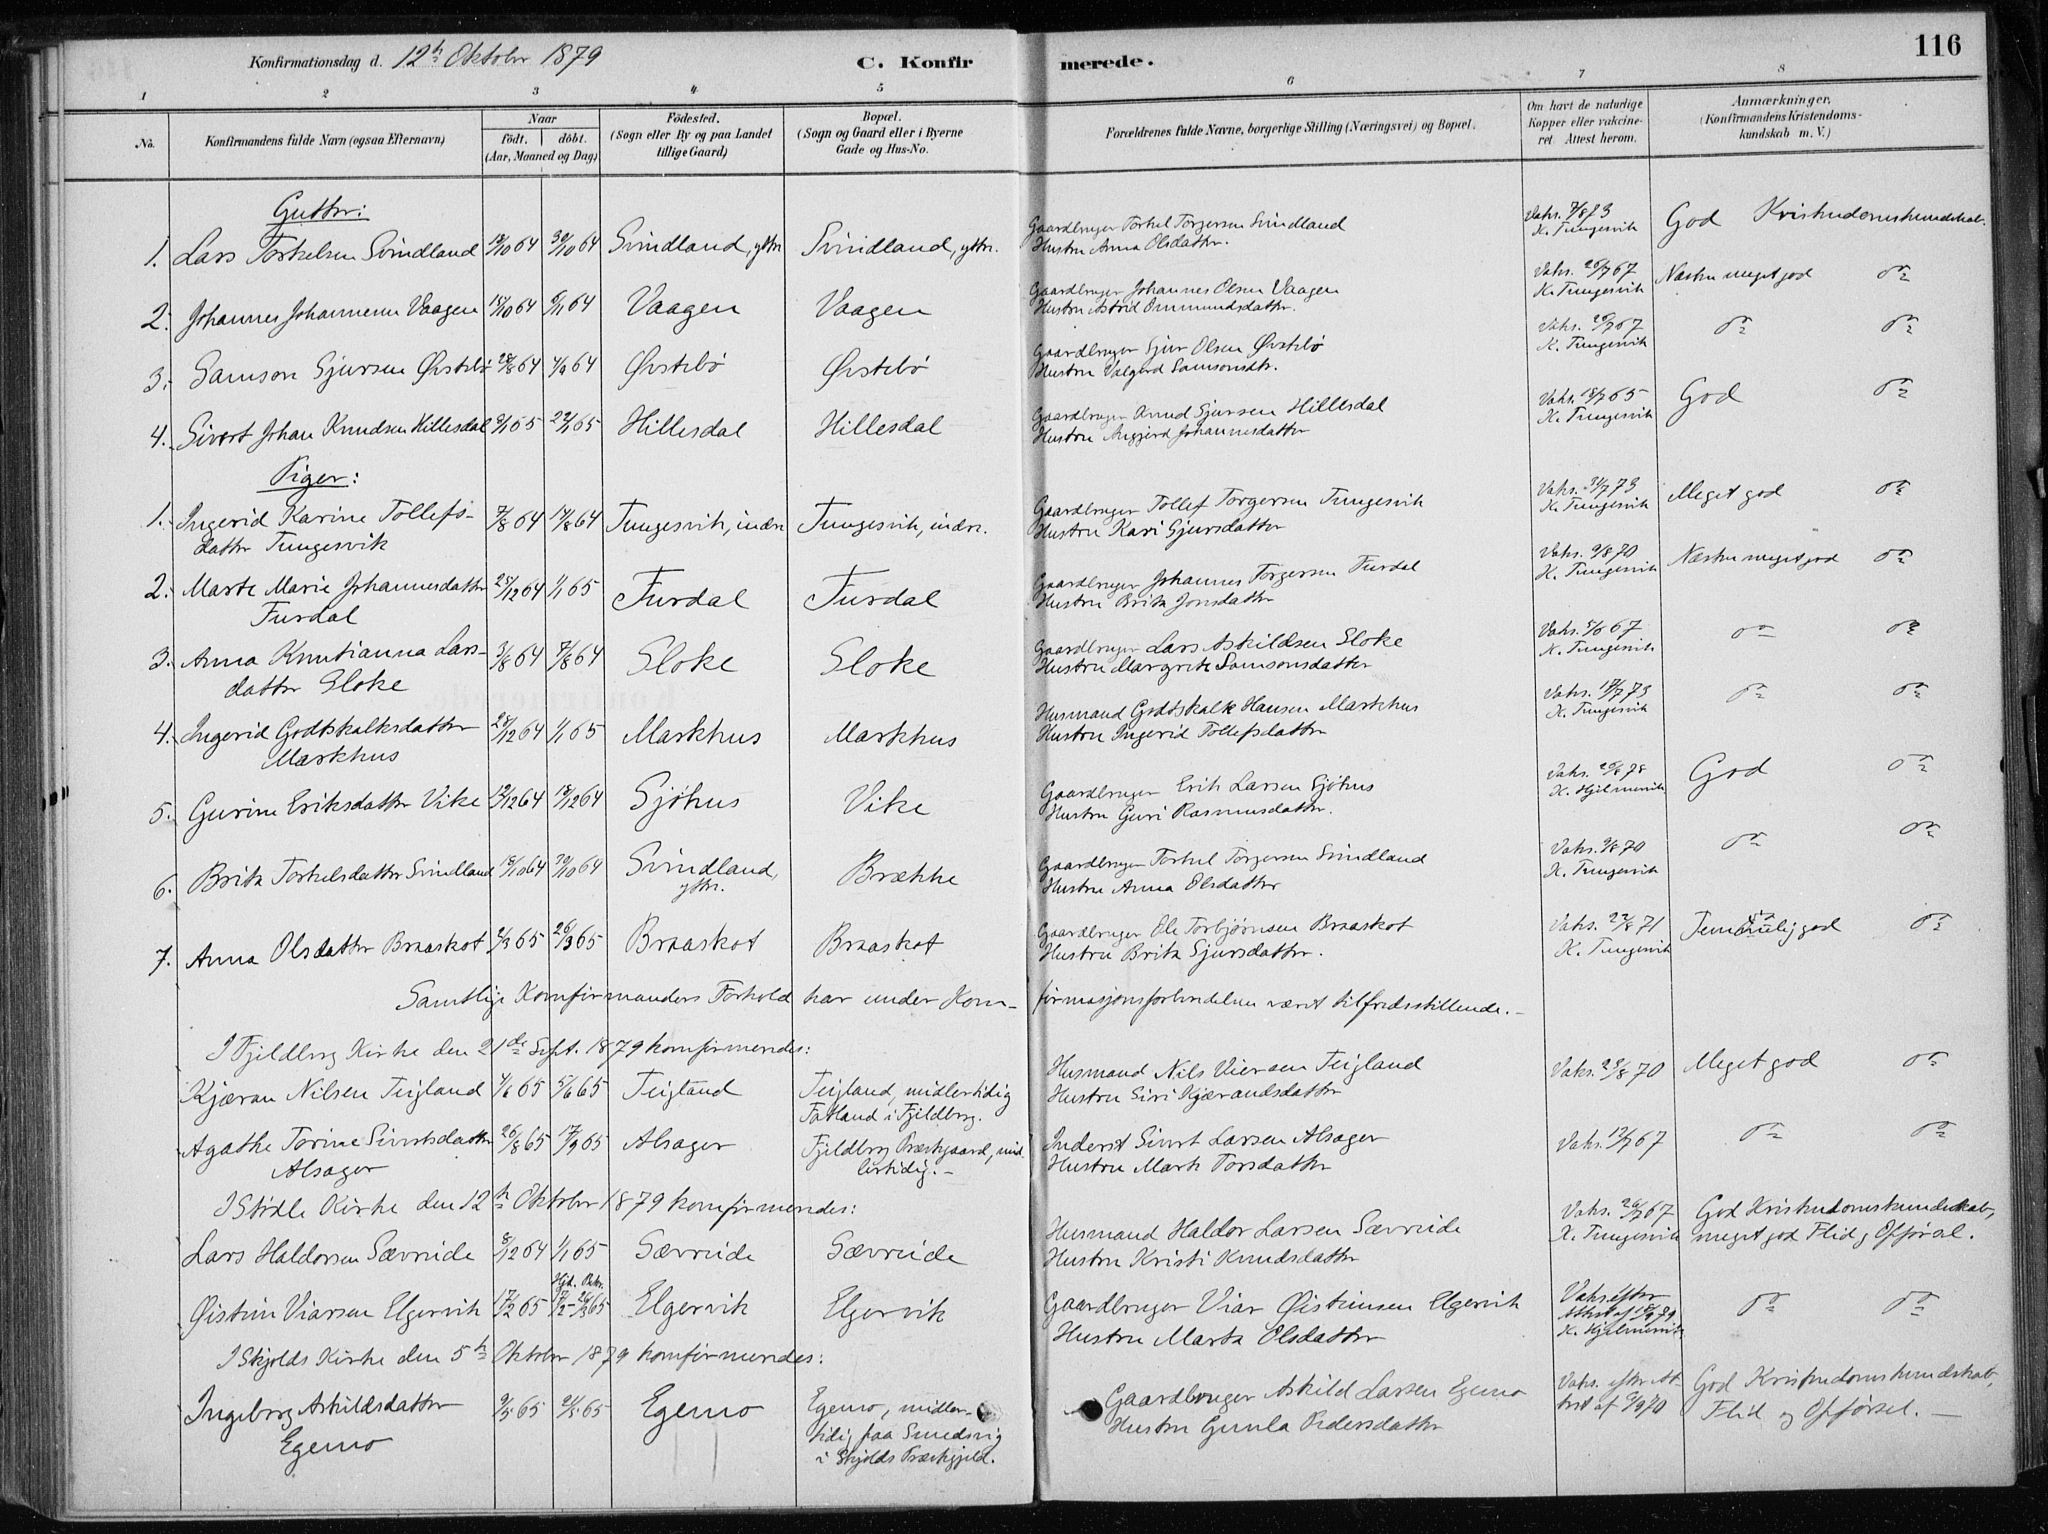 116
Konfirmationsdag d. 12th Oktober 1879 C. Konfirmerede.
1 2 3 4 5 6 7 8
No. Konfirmandens fulde Navn (ogsaa Efternavn) Naar født. døbt. (Aar, Maaned og Dag) Fødested. (Sogn eller By og paa Landet tillige Gaard) Bopæl. (Sogn og Gaard eller i Byerne Gade og Hus-No. Forældrenes fulde Navne, borgerlige Stilling (Næringsvei) og Bopæl. Om havt de naturlige Kopper eller vakcineret. Attest herom. Anmærkninger. (Konfirmandens Kristendomskundskab m. V.)
Gutter:
1. Lars Torkelsen Svindland 19/10 64 30/10 64 Svindland, yttre Svindland, yttre. Gaardbruger Torkel Torgersen Svindland
Hustru Anna Olsdatter. Vaks. 7/8 73 K. Tungesvik God Kristendomskundskab.
2. Johannes Johannesen Vaagen 18/10 64 6/11 64 Vaagen Vaagen Gaardbruger Johannes Olsen Vaagen
Hustru Astrid Ommundsdatter. Vaks. 26/7 67 K. Tungesvik Næsten meget god do
3. Samson Sjursen Østebø 28/8 64 4/9 64 Østebø Østebø Gaardbruger Sjur Olsen Østebø
Hustru Valgerd Samsonsdtr. Vaks. 26/7 67 K. Tungesvik do do
4. Sivert Johan Knudsen Hillesdal 9/1 65 22/1 65 Hillesdal Hillesdal Gaardbruger Knud Sjursen Hillesdal
Hustru Johannesdatter Vaks. 18/7 65 K. Tungesvik God do
Piger:
1. Ingerid Karine Tollefsdatter Tungesvik 7/8 64 14/8 64 Tungesvik, indre Tungesvik, indre. Gaardbruger Tollef Torgersen Tungesvik
Hustru Kari Sjursdatter Vaks. 31/7 73 K. Tungesvik Meget god do
2. Marte Marie Johannesdatter Furdal 25/12 64 1/1 65 Furdal Furdal Gaardbruger Johannes Torgersen Furdal
Hustru Brita Jonsdatter Vaks. 9/8 70 K. Tungesvik Næsten meget god do
3. Anna Knutianna Larsdatter Eloke 3/8 64 7/8 64 Eloke Eloke Gaardbruger Lars Askildsen Eloke
Hustru Margrete Samsonsdatter Vaks. 67 K. Tungesvik do do
4. Ingerid Godtskalksdatter Markhus 25/12 64 1/1 65 Markhus Markhus Husmand Godtskalk Hansen Markhus
Hustru Ingerid Tollefsdatter Vaks. 17/7 73 K. Tungesvik do do
5. Gurine Eriksdatter Vike 12/12 64 18/12 64 Sjøhus Vike Gaardbruger Erik Larsen Sjøhus
Hustru Guri Rasmusdatter. Vaks. 20/8 78 K. Hjelmervik God do
6. Brita Torkelsdatter Svindland 18/10 64 30/10 64 Svindland, yttre. Brække Gaardbruger Torkel Torgersen Svindland
Hustru Anna Olsdatter Vaks. 9/8 70 K. Tungesvik do do
7. Anna Olsdatter Braaskot 2/3 65 26/3 65 Braaskot Braaskot Gaardbruger Ole Torbjørnsen Braaskot
Hustru Brita Sjursdatter. Vaks. 22/8 71 K. Tungesvik god do
Samtlige Konfirmanders Forhold har under Konfirmasjonsforberedelsen været tilfredsstillende.
I Fjeldberg Kirke den 21de Sept. 1879 konfirmeredes:
Kjæran Nilsen Teigland 4/6 65 5/6 65 Teigland Teigland, midlertidig Fatland i Fjeldberg. Husmand Nils Teigland
Hustru Siri Kjærandsdatter Vaks. 23/8 70 Meget god do
Agathe Torine Sivertsdatter Alsager 26/8 65 17/9 65 Alsager Fjeldberg Præstgaard, midlertidig. Inderst Sivert Larsen Alsager
Hustru Marte Torsdatter Vaks. 12/7 67 do do
I Stødle Kirke den 12th Oktober 1879 konfirmeredes:
Lars Haldorsen Sævreide 8/12 64 1/1 65 Sævreide Sævreide Husmand Haldor Larsen Sævreide
Hustru Kristi Knudsdatter Vaks. 26/7 67 K. Tungesvik God Kristendomskundskab, meget god Flid og Opførsel.
Øistein Viarsen Elgervik 17/2 65 65 Elgervik Elgervik Gaardbruger Viar Øisteinsen Elgervik
Hustru Marta Olsdatter Vaks. efter Attest af 79 K. Hjelmervik do do
I Skjolds Kirke den 5th Oktober 1879 konfirmeredes:
Ingeborg Askildsdatter Egemo 9/5 65 21/5 65 Egemo Egemo, midlertidig paa Smedsvig i Skjolds Præstgjeld. Gaardbruger Askild Larsen Egemo
Hustru Gunla Pedersdatter Vaks. efter Attest af 70 God Kristendomskundskab Flid og Opførsel.